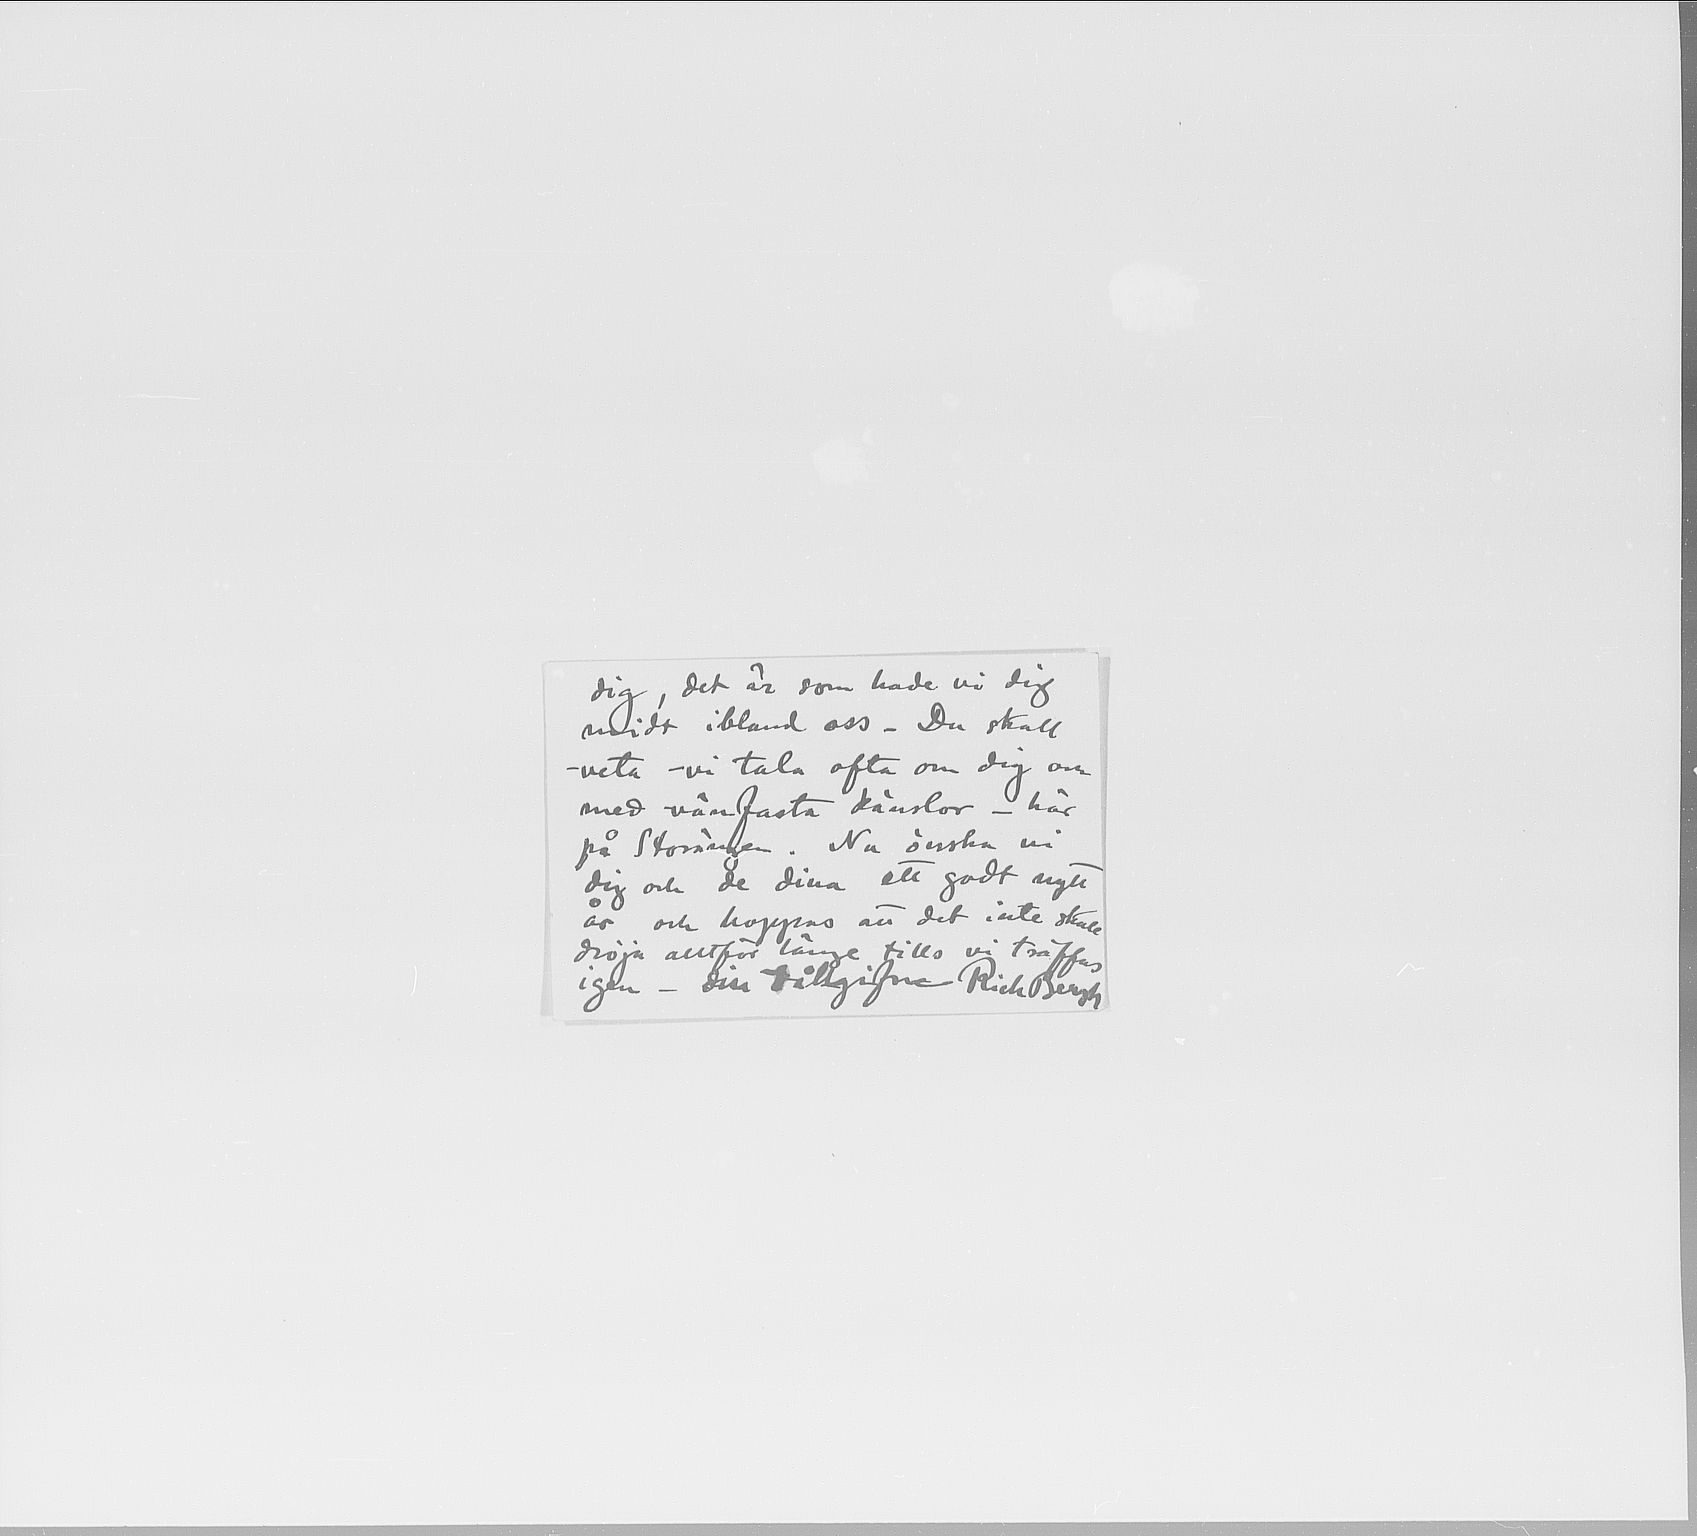 dig, det är som hade vi dig
midt ibland oss - Du skall
veta vi tala ofta om dig om
med vänfasta känslor - här
på Storängen. Nu önska vi
dig och de dina ett godt nytt
år och hoppas att det inte skall
dröja alltför länge tills vi träffas
igen - din tillgifne Rich Bergh